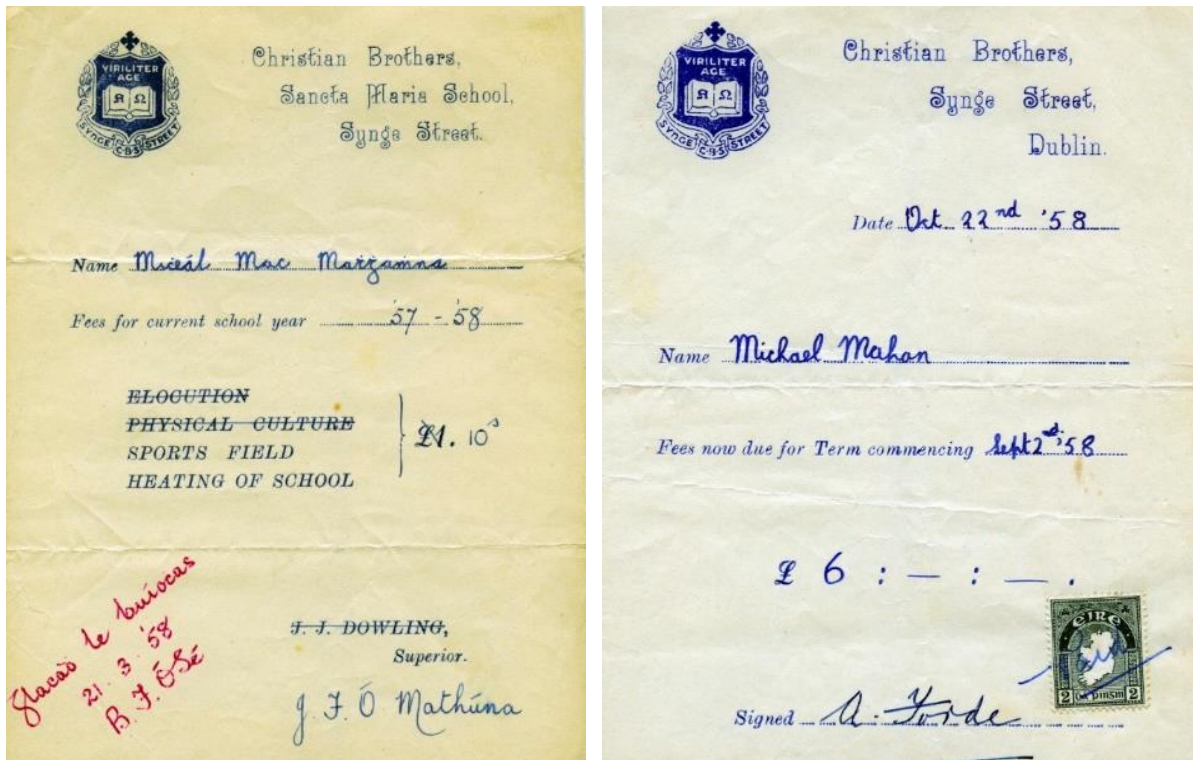 VIRILITER
AGE
Α Ω
SYNGE C·B·S STREET
Christian Brothers,
Sancta Maria School,
Synge Street.
Name Miceál Mac Matgamna
Fees for current school year '57 - '58
ELOCUTION
PHYSICAL CULTURE
SPORTS FIELD
HEATING OF SCHOOL
£1. 10s
Glacad le buíocas
21. 3. '58
B. F. Ó Sé
J. J. DOWLING,
Superior.
J. F. Ó Mathúna
VIRILITER
AGE
Α Ω
SYNGE C·B·S STREET
Christian Brothers,
Synge Street,
Dublin.
Date Oct 22nd '58
Name Michael Mahon
Fees now due for Term commencing Sept 2nd '58
£ 6 : — : — .
éIRe
2 pinsin 2
Signed A. Forde